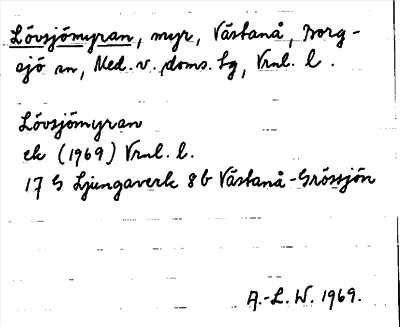 Lövsjömyran, myr, Västanå, Borg-
sjö sn, Med. v. doms. tg, Vrnl. l.
Lövsjömyran
ek (1969) Vrnl. l.
17 G Ljungaverk 8 b Västanå-Grössjön
A.-L. W. 1969.